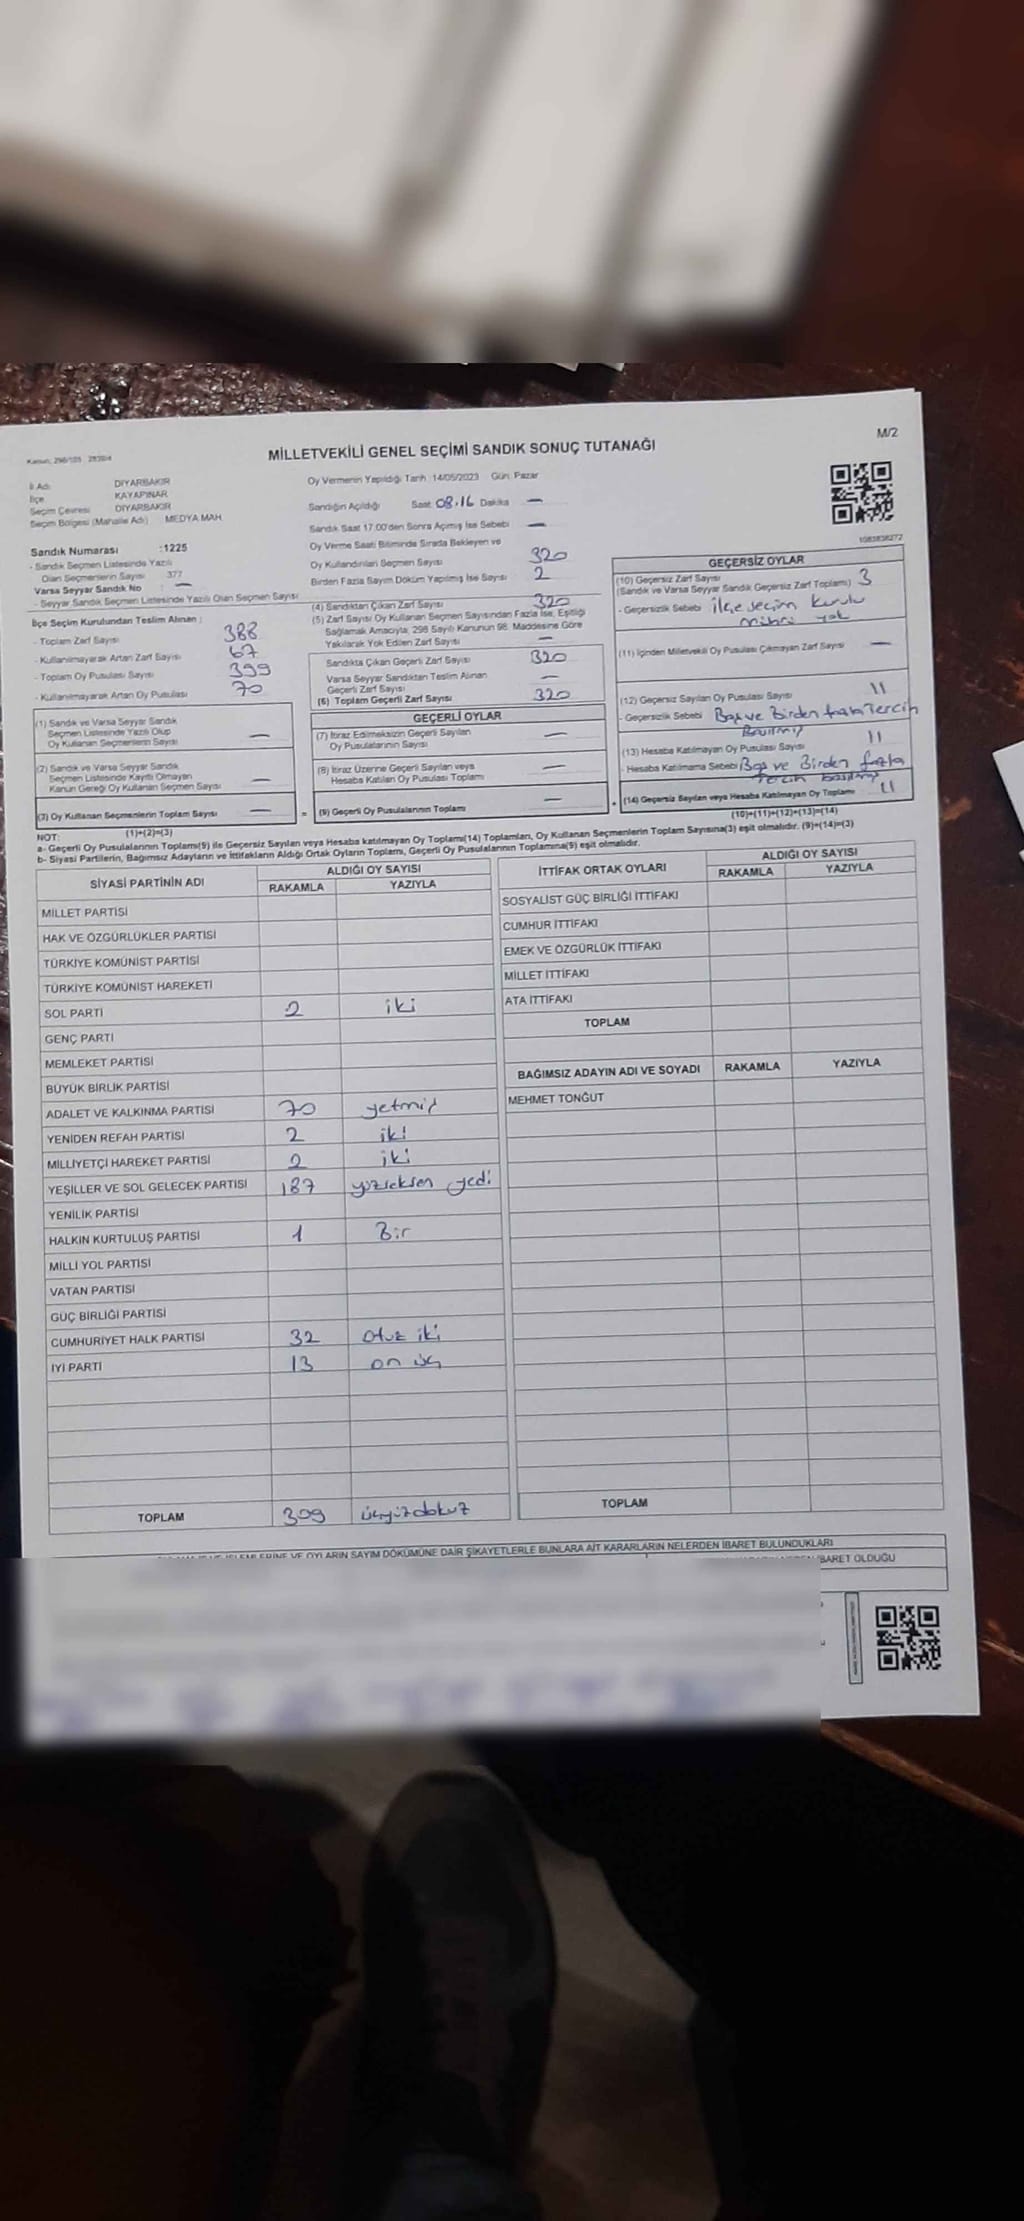 M/2
MİLLETVEKİLİ GENEL SEÇİMİ SANDIK SONUÇ TUTANAĞI
İl Adı DİYARBAKIR
İlçe KAYAPINAR
Seçim Çevresi DİYARBAKIR
Seçim Bölgesi (Mahalle Adı) MEDYA MAH
Sandık Numarası :1225
- Sandık Seçmen Listesinde Yazılı
Olan Seçmenlerin Sayısı 377
Varsa Seyyar Sandık No : —
- Seyyar Sandık Seçmen Listesinde Yazılı Olan Seçmen Sayısı
İlçe Seçim Kurulundan Teslim Alınan :
- Toplam Zarf Sayısı 388
- Kullanılmayarak Artan Zarf Sayısı 67
- Toplam Oy Pusulası Sayısı 399
- Kullanılmayarak Artan Oy Pusulası 70
(1) Sandık ve Varsa Seyyar Sandık
Seçmen Listesinde Yazılı Olup
Oy Kullanan Seçmenlerin Sayısı —
(2) Sandık ve Varsa Seyyar Sandık
Seçmen Listesinde Kayıtlı Olmayan
Kanun Gereği Oy Kullanan Seçmen Sayısı —
(3) Oy Kullanan Seçmenlerin Toplam Sayısı —
(1)+(2)=(3)
Oy Vermenin Yapıldığı Tarih : 14/05/2023 Gün: Pazar
Sandığın Açıldığı Saat 08.16 Dakika —
Sandık Saat 17.00'den Sonra Açımış İse Sebebi —
Oy Verme Saati Bitiminde Sırada Bekleyen ve
Oy Kullandırılan Seçmen Sayısı 320
Birden Fazla Sayım Döküm Yapılmış İse Sayısı 2
(4) Sandıktan Çıkan Zarf Sayısı 320
(5) Zarf Sayısı Oy Kullanan Seçmen Sayısından Fazla İse, Eşitliği
Sağlamak Amacıyla, 298 Sayılı Kanunun 98. Maddesine Göre
Yakılarak Yok Edilen Zarf Sayısı —
Sandıkta Çıkan Geçerli Zarf Sayısı 320
Varsa Seyyar Sandıktan Teslim Alınan
Geçerli Zarf Sayısı —
(6) Toplam Geçerli Zarf Sayısı 320
GEÇERLİ OYLAR
(7) İtiraz Edilmeksizin Geçerli Sayılan
Oy Pusulalarının Sayısı —
(8) İtiraz Üzerine Geçerli Sayılan veya
Hesaba Katılan Oy Pusulası Toplamı —
= (9) Geçerli Oy Pusulalarının Toplamı —
1083838272
GEÇERSİZ OYLAR
(10) Geçersiz Zarf Sayısı
(Sandık ve Varsa Seyyar Sandık Geçersiz Zarf Toplamı) 3
- Geçersizlik Sebebi ilçe seçim kurulu
mührü yok
(11) İçinden Milletvekili Oy Pusulası Çıkmayan Zarf Sayısı —
(12) Geçersiz Sayılan Oy Pusulası Sayısı 11
- Geçersizlik Sebebi Boş ve Birden fazla Tercih
(13) Hesaba Katılmayan Oy Pusulası Sayısı 11
- Hesaba Katılmama Sebebi Boş ve Birden fazla
+ (14) Geçersiz Sayılan veya Hesaba Katılmayan Oy Toplamı 11
(10)+(11)+(12)+(13)=(14)
NOT:
a- Geçerli Oy Pusulalarının Toplamı(9) ile Geçersiz Sayılan veya Hesaba katılmayan Oy Toplamı(14) Toplamları, Oy Kullanan Seçmenlerin Toplam Sayısına(3) eşit olmalıdır. (9)+(14)=(3)
b- Siyasi Partilerin, Bağımsız Adayların ve İttifakların Aldığı Ortak Oyların Toplamı, Geçerli Oy Pusulalarının Toplamına(9) eşit olmalıdır.
SİYASİ PARTİNİN ADI ALDIĞI OY SAYISI
RAKAMLA YAZIYLA
MİLLET PARTİSİ
HAK VE ÖZGÜRLÜKLER PARTİSİ
TÜRKİYE KOMÜNİST PARTİSİ
TÜRKİYE KOMÜNİST HAREKETİ
SOL PARTİ 2 iki
GENÇ PARTİ
MEMLEKET PARTİSİ
BÜYÜK BİRLİK PARTİSİ
ADALET VE KALKINMA PARTİSİ 70 yetmiş
YENİDEN REFAH PARTİSİ 2 iki
MİLLİYETÇİ HAREKET PARTİSİ 2 iki
YEŞİLLER VE SOL GELECEK PARTİSİ 187 yüzseksen yedi
YENİLİK PARTİSİ
HALKIN KURTULUŞ PARTİSİ 1 Bir
MİLLİ YOL PARTİSİ
VATAN PARTİSİ
GÜÇ BİRLİĞİ PARTİSİ
CUMHURİYET HALK PARTİSİ 32 otuz iki
İYİ PARTİ 13 on üç
TOPLAM 309 üçyüzdokuz
İTTİFAK ORTAK OYLARI ALDIĞI OY SAYISI
RAKAMLA YAZIYLA
SOSYALİST GÜÇ BİRLİĞİ İTTİFAKI
CUMHUR İTTİFAKI
EMEK VE ÖZGÜRLÜK İTTİFAKI
MİLLET İTTİFAKI
ATA İTTİFAKI
TOPLAM
BAĞIMSIZ ADAYIN ADI VE SOYADI RAKAMLA YAZIYLA
MEHMET TONĞUT
TOPLAM
OYLARIN SAYIM DÖKÜMÜNE DAİR ŞİKAYETLERLE BUNLARA AİT KARARLARIN NELERDEN İBARET BULUNDUKLARI
İBARET OLDUĞU